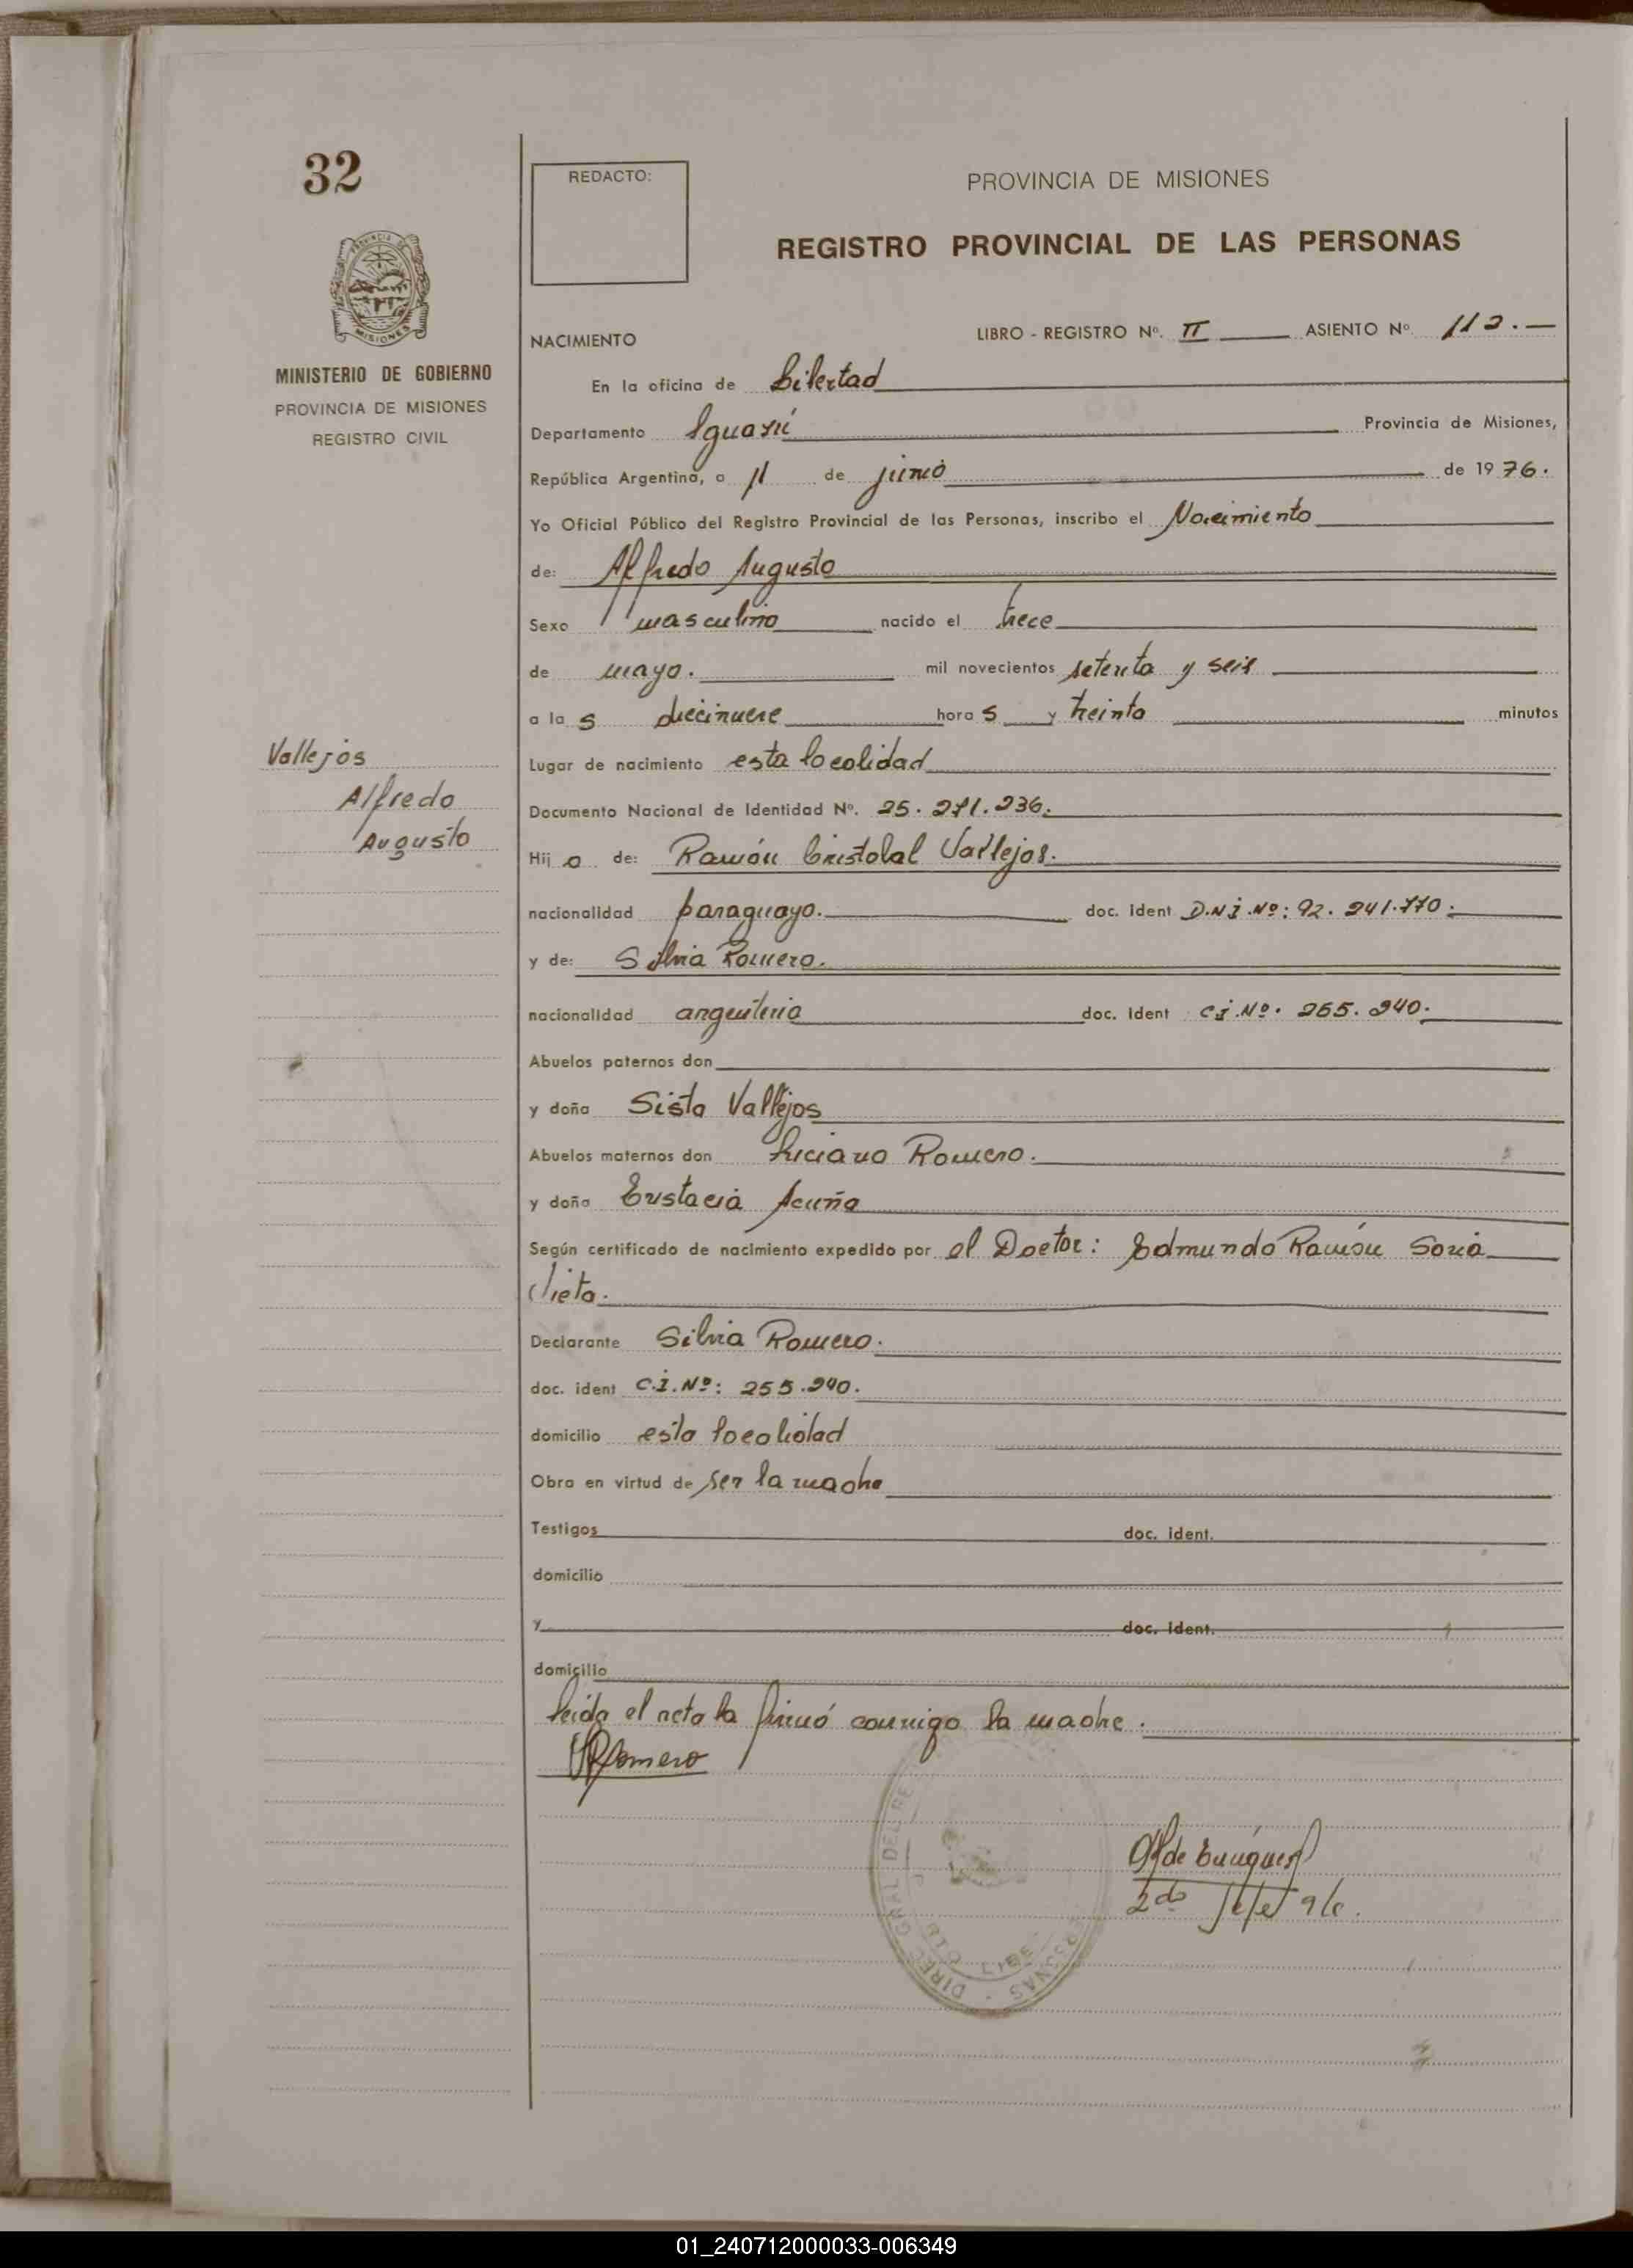 32
MINISTERIO DE GOBIERNO
PROVINCIA DE MISIONES
REGISTRO CIVIL
Vallejos
Alfredo
Augusto
REDACTO:
PROVINCIA DE MISIONES
REGISTRO PROVINCIAL DE LAS PERSONAS
NACIMIENTO LIBRO - REGISTRO Nº. II ASIENTO Nº 112.-
En la oficina de Libertad
Departamento Iguazú Provincia de Misiones,
República Argentina, a 11 de junio de 1976.
Yo Oficial Público del Registro Provincial de las Personas, inscribo el Nacimiento
de: Alfredo Augusto
Sexo masculino nacido el trece
de mayo. mil novecientos setenta y seis
a las diecinueve horas y treinta minutos
Lugar de nacimiento esta localidad
Documento Nacional de Identidad Nº. 25.271.236.
Hijo de: Ramón Cristobal Vallejos.
nacionalidad paraguayo. doc. ident D.N.I.Nº: 92.241.770.
y de: Silvia Romero.
nacionalidad argentina doc. ident C.I.Nº. 255.240.
Abuelos paternos don
y doña Sista Vallejos
Abuelos maternos don Luciano Romero.
y doña Eustacia Acuña
Según certificado de nacimiento expedido por el Doctor: Edmundo Ramón Soria
Vieta.
Declarante Silvia Romero.
doc. ident C.I.Nº: 255.240.
domicilio esta localidad
Obra en virtud de ser la madre
Testigos doc. ident.
domicilio
y doc. ident.
domicilio
leida el acta la firmó conmigo la madre.
Romero
DIREC. GRAL DEL RE
2do Jefe
01_240712000033-006349